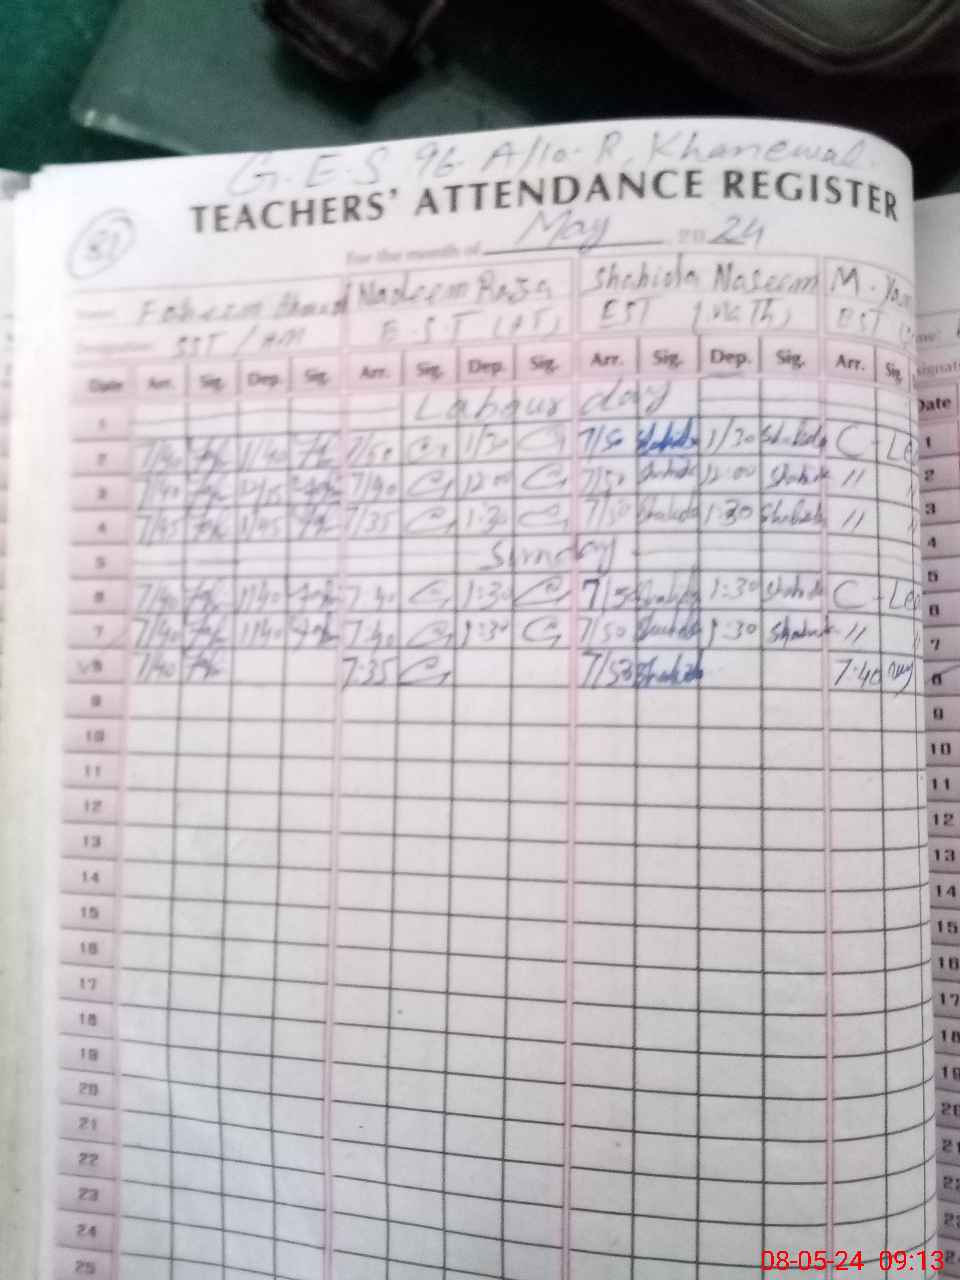 G.E.S 96 A/10-R, Khanewal.
TEACHERS' ATTENDANCE REGISTER
82
For the month of May 2024
Faheem Ahmad Nadeem Raza Shahida Naseem M.
SST / HM E.S.T (AT) EST (Math) EST
Date Arr. Sig. Dep. Sig. Arr. Sig. Dep. Sig. Arr. Sig. Dep. Sig. Arr. Sig.
1 Labour day
2 7/40 1/40 7/50 1/30 7/50 Shahida 1/30 Shahida C-Lea
3 7/40 12/15 7/40 12:00 7/50 Shahida 12:00 Shahida //
4 7/45 1/45 7/35 1:30 7/50 Shahida 1:30 Shahida //
5 Sunday
6 7/40 1/40 7:40 1:30 7/50 Shahida 1:30 Shahida C-Lea
7 7/40 1/40 7:40 1:30 7/50 Shahida 1:30 Shahida //
8 7/40 7:35 7/50 Shahida 7:40
9
10
11
12
13
14
15
16
17
18
19
20
21
22
23
24
25
Date
1
2
3
4
5
6
7
8
9
10
11
12
13
14
15
16
17
18
19
20
21
22
23
24
08-05-24 09:13